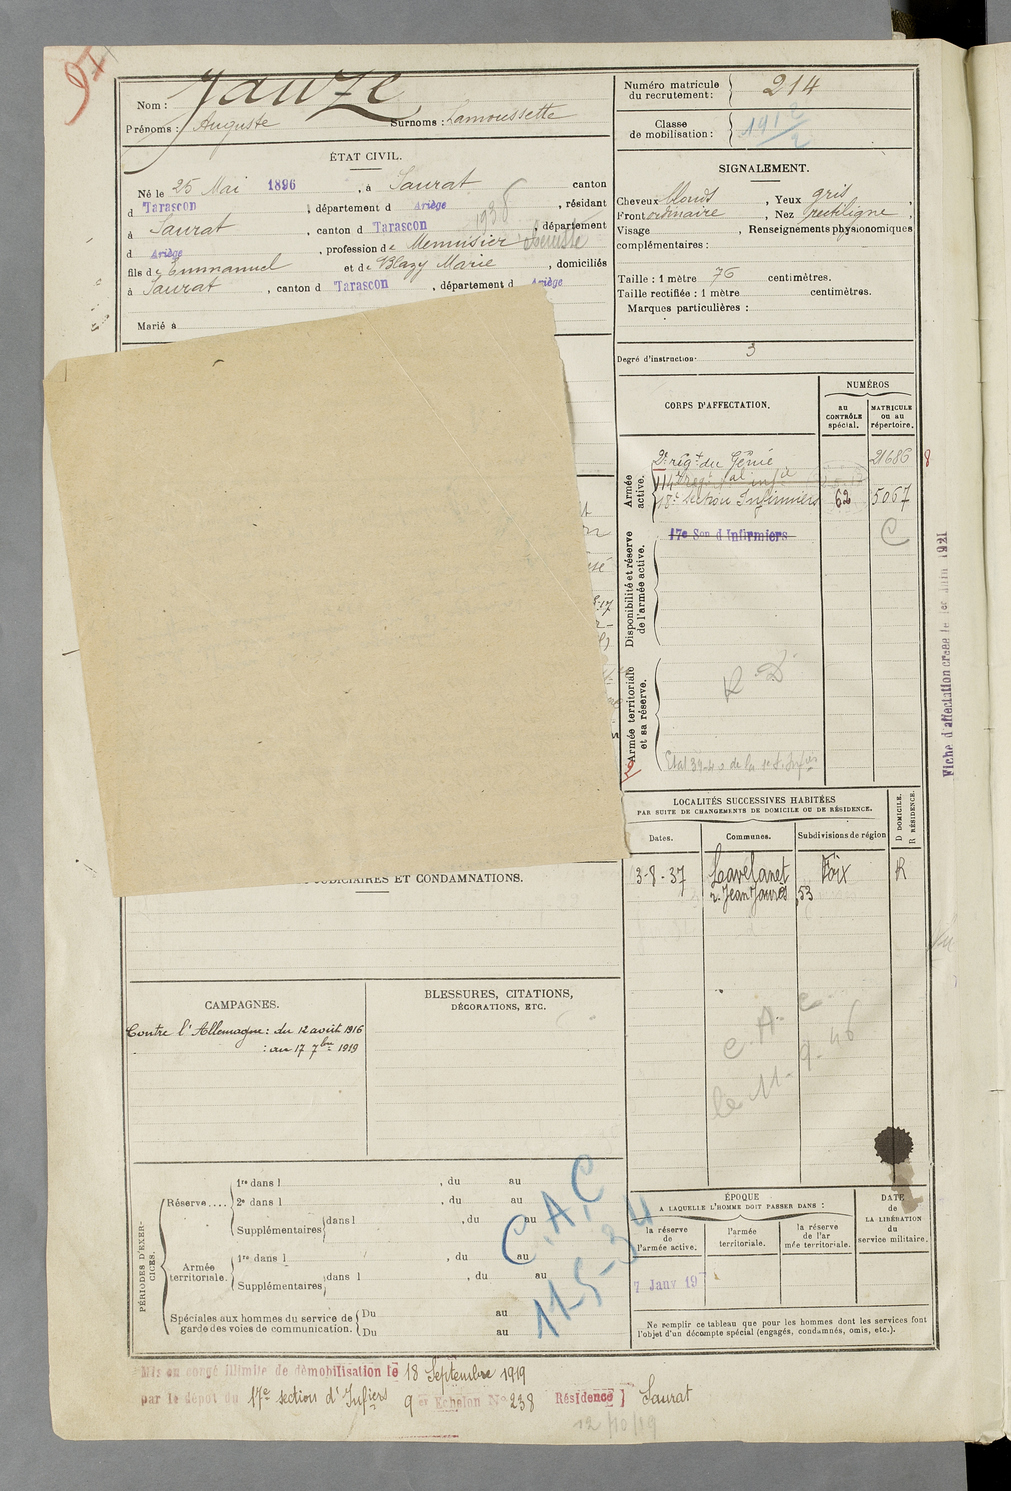 97
Nom : Jauze
Prénoms : Auguste Surnoms : Lamoussette
ÉTAT CIVIL.
Né le 25 Mai 1896, à Saurat canton
d Tarascon, département d Ariège, résidant
à Saurat, canton d Tarascon, département
1936
d Ariège, profession de Menuisier ébéniste
fils de Emmanuel et de Blazy Marie, domiciliés
à Saurat, canton d Tarascon, département d Ariège
Marié à
JUDICIAIRES ET CONDAMNATIONS.
CAMPAGNES.
Contre l'Allemagne : du 12 août 1916
: au 17 7bre 1919
BLESSURES, CITATIONS,
DÉCORATIONS, ETC.
PÉRIODES D'EXERCICES.
Réserve....
1re dans l , du au
2e dans l , du au
Supplémentaires dans l , du au
Armée territoriale.
1re dans l , du au
Supplémentaires dans l , du au
Spéciales aux hommes du service de garde des voies de communication.
Du au
Du au
C.A.C
11-5-34
Numéro matricule du recrutement : 214
Classe de mobilisation : 1912/2
SIGNALEMENT.
Cheveux blonds, Yeux gris,
Front ordinaire, Nez rectiligne,
Visage , Renseignements physionomiques
complémentaires :
Taille : 1 mètre 76 centimètres.
Taille rectifiée : 1 mètre centimètres.
Marques particulières :
Degré d'instruction 3
CORPS D'AFFECTATION.
NUMÉROS
au CONTRÔLE spécial.
MATRICULE ou au répertoire.
Armée active.
2e régt du Génie 21686 8
18e Section Infirmiers 62 5067
Disponibilité et réserve de l'armée active.
17e Son d'Infirmiers C
Armée territoriale et sa réserve.
R.D
Fiche d'affectation créée le 1er Juin 1921
LOCALITÉS SUCCESSIVES HABITÉES
PAR SUITE DE CHANGEMENTS DE DOMICILE OU DE RÉSIDENCE.
D DOMICILE.
R RÉSIDENCE.
Dates. Communes. Subdivisions de région
3-8-37 Lavelanet Foix R
r. Jean Jaurès, 53
C.A.C
le 11-9-46
ÉPOQUE
A LAQUELLE L'HOMME DOIT PASSER DANS :
la réserve de l'armée active.
l'armée territoriale.
la réserve de l'armée territoriale.
DATE de LA LIBÉRATION du service militaire.
Ne remplir ce tableau que pour les hommes dont les services font
l'objet d'un décompte spécial (engagés, condamnés, omis, etc.).
Mis en congé illimité de démobilisation le 18 Septembre 1919
par le dépôt du 17e section d'Infiers 9e Echelon No 238 Résidence Saurat
12/10/19